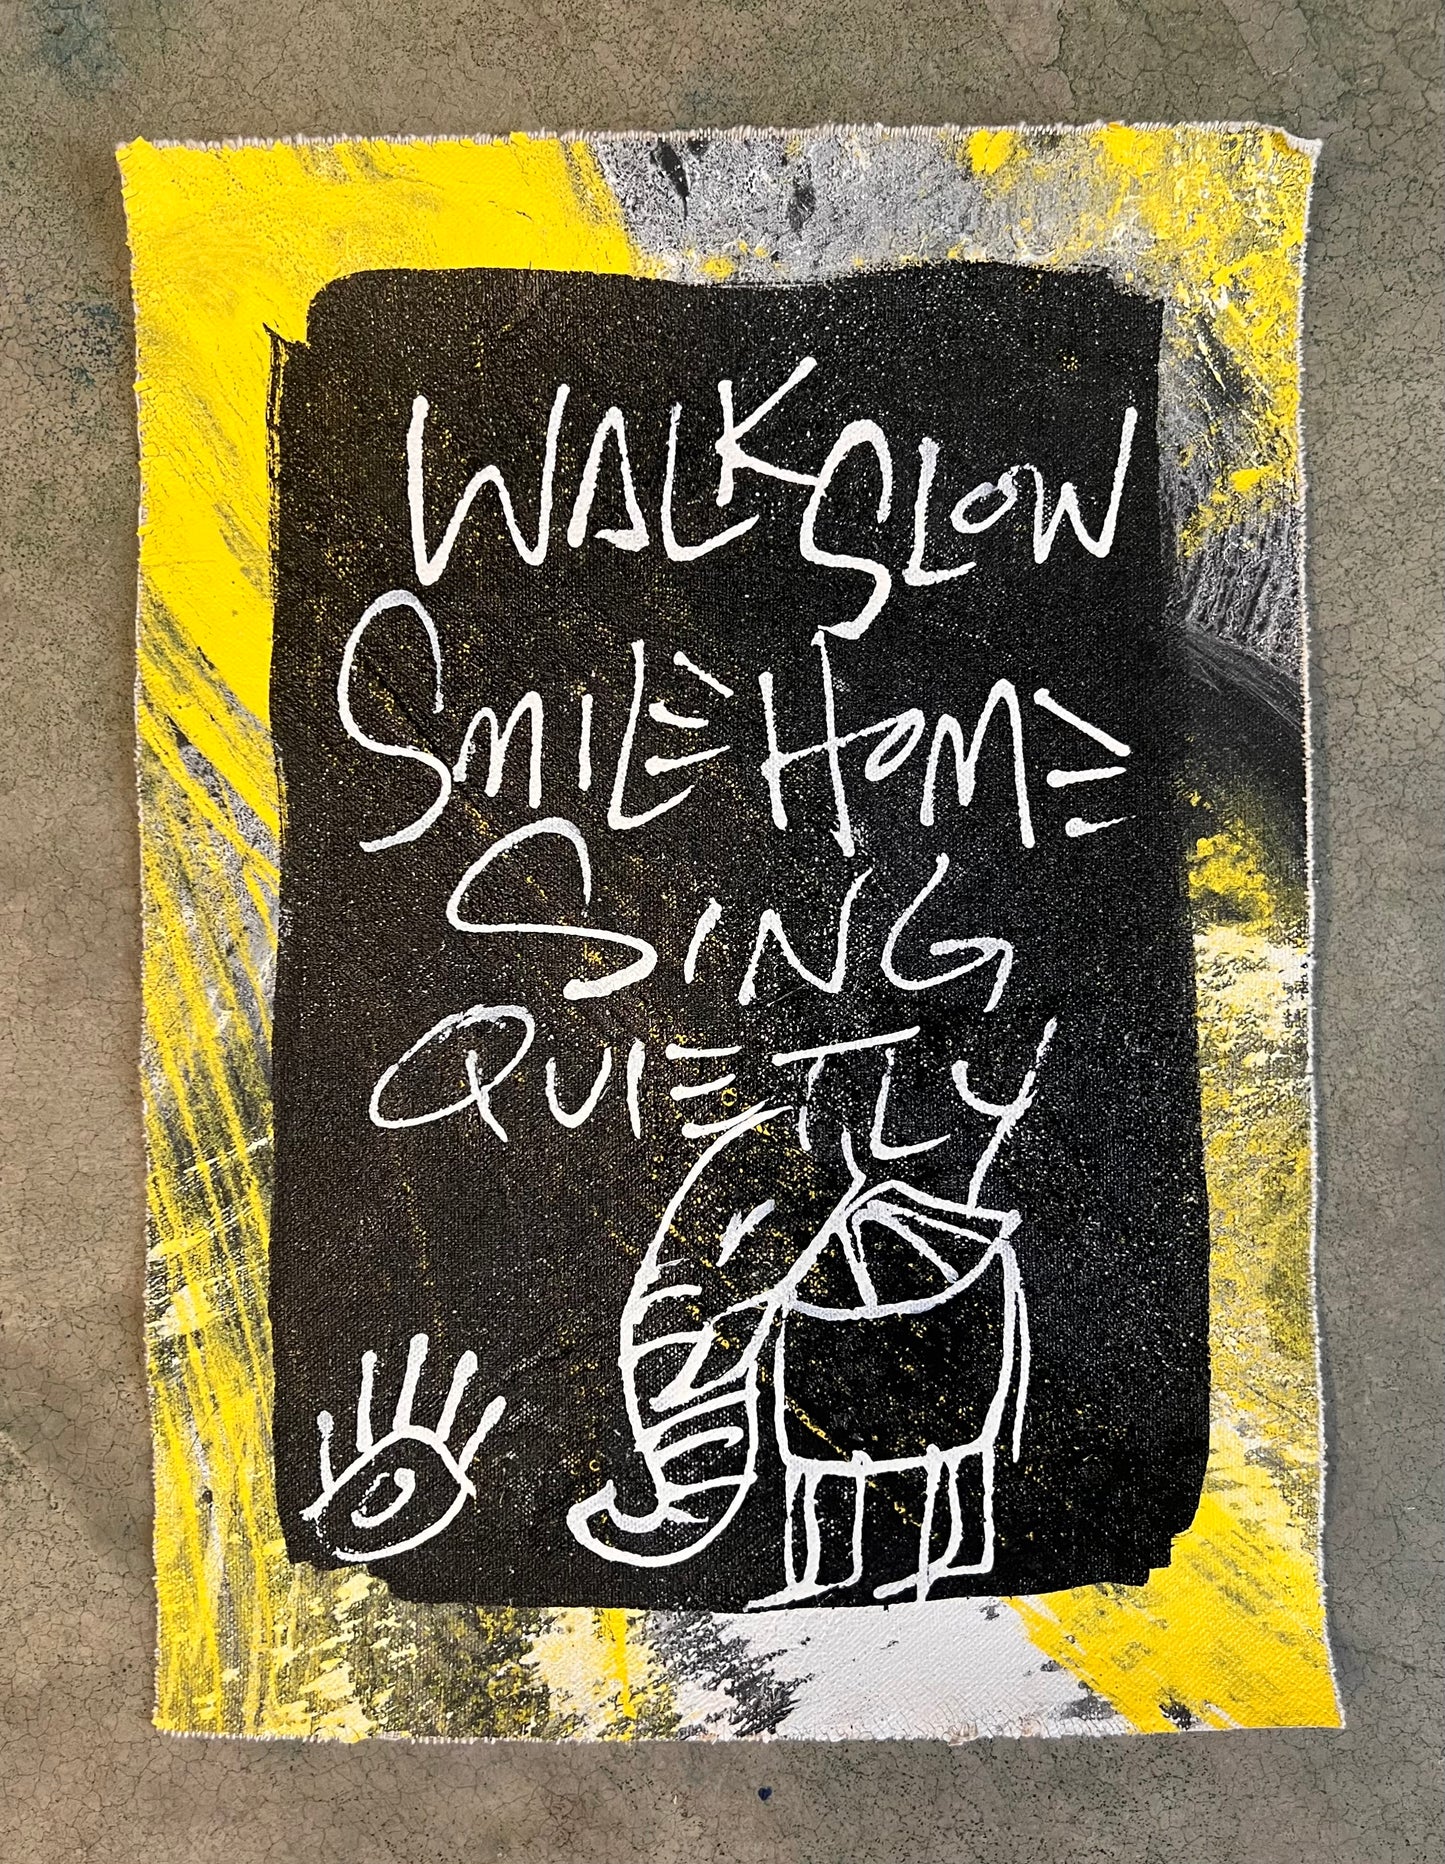 WALK SLOW
SMILE HOME
SING
QUIETLY